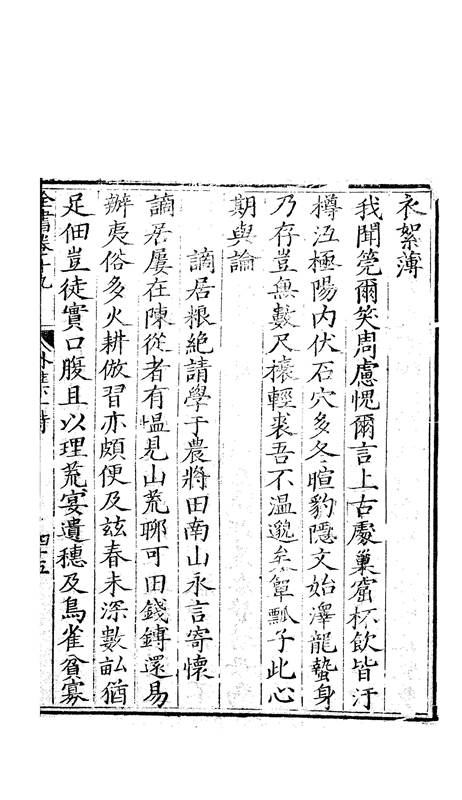 衣絮薄
我聞筦爾笑周慮愧爾言上古處巢窟杯飲皆汙
樽沍極陽内伏石穴多冬暄豹隱文始澤龍蟄身
乃存豈無數尺榱輕裘吾不温邈矣簞瓢子此心
期與論
謫居粮絶請學于農將田南山永言寄懷
謫居屢在陳從者有愠見山荒聊可田錢鎛還易
辦夷俗多火耕倣習亦頗便及兹春未深數畝猶
足佃豈徒實口腹且以理荒宴遺穗及鳥雀貧寡
全書卷十九
四十五